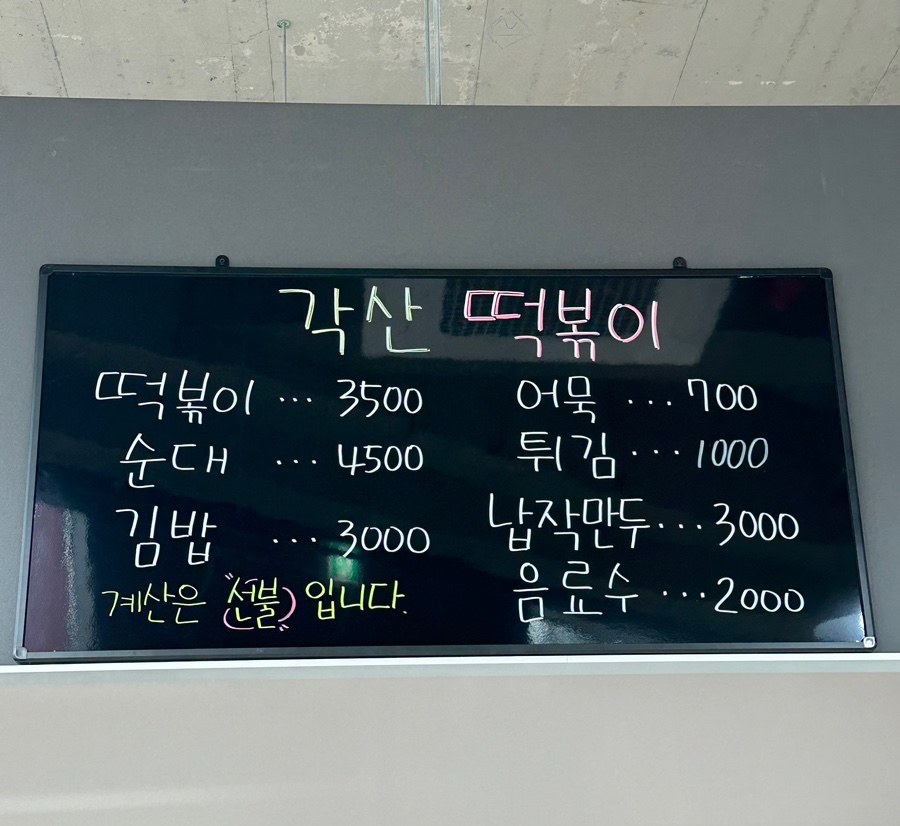 각산 떡볶이
떡볶이 ... 3500
순대 ... 4500
김밥 ... 3000
계산은 "선불" 입니다.
어묵 ... 700
튀김 ... 1000
납작만두 ... 3000
음료수 ... 2000